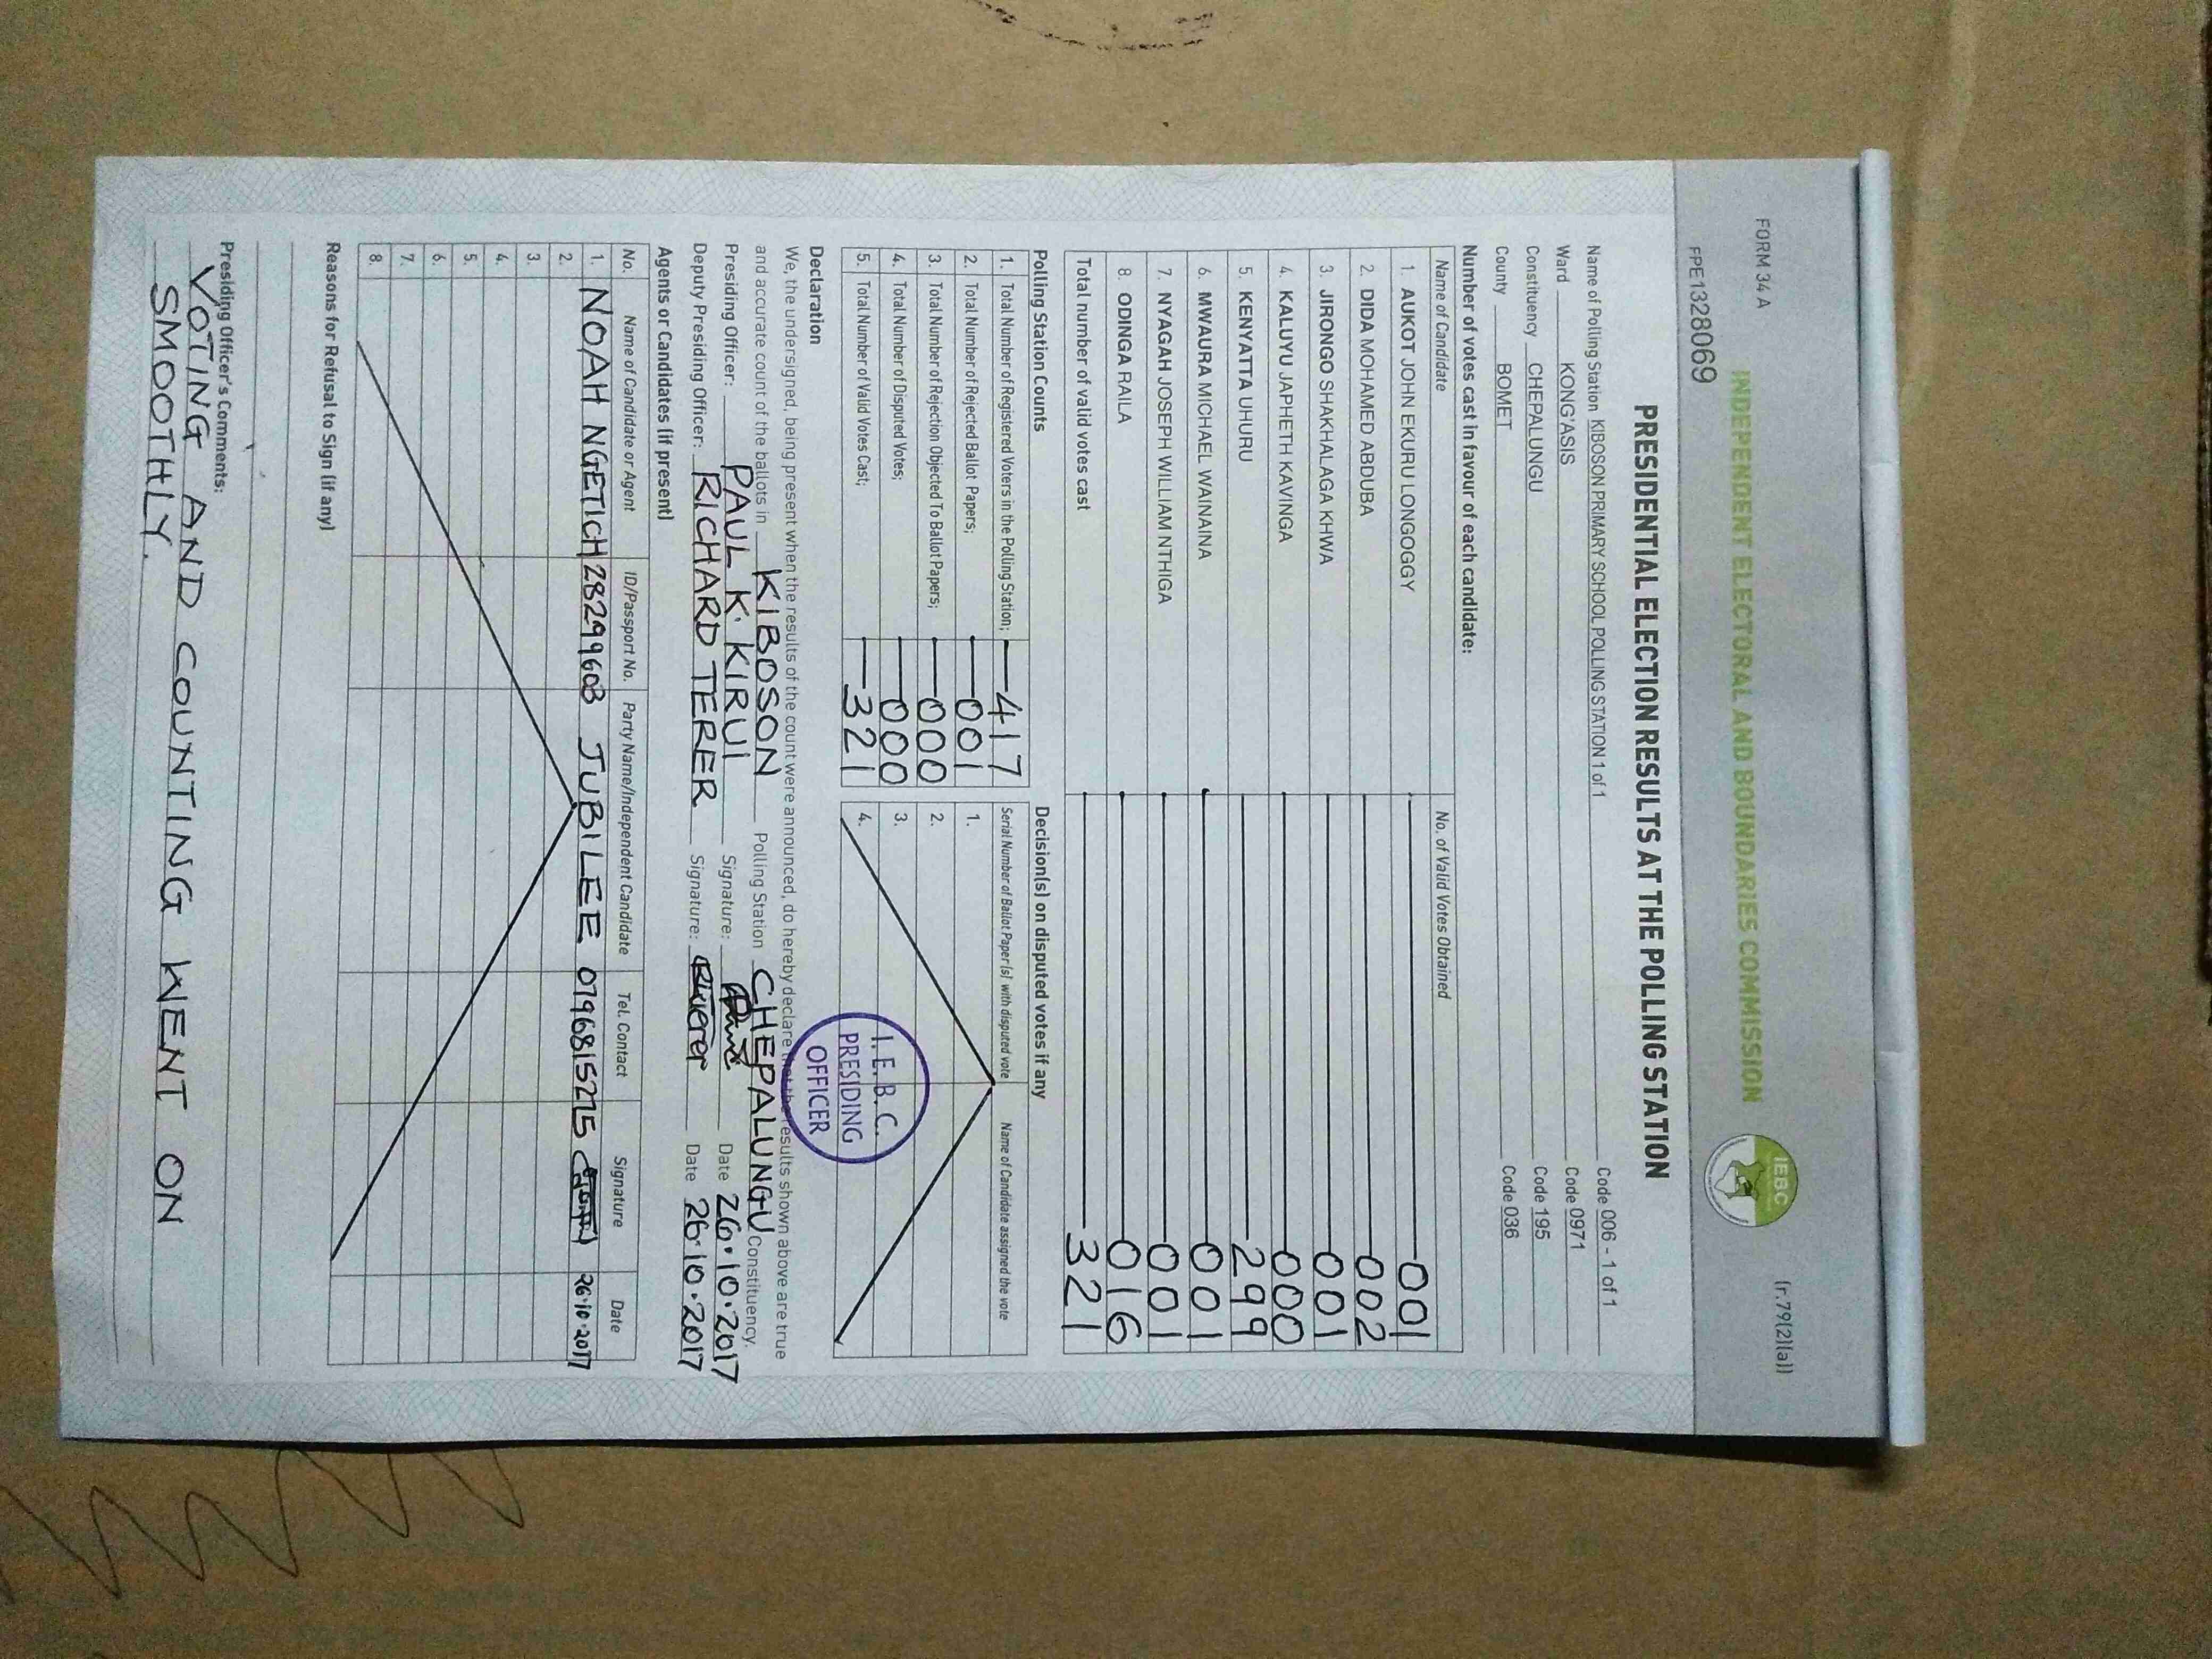 FORM 34 A
(r.79(2)(a))
INDEPENDENT ELECTORAL AND BOUNDARIES COMMISSION
IEBC
FPE1328069
PRESIDENTIAL ELECTION RESULTS AT THE POLLING STATION
Name of Polling Station KIBOSON PRIMARY SCHOOL POLLING STATION 1 of 1 Code 006 - 1 of 1
Ward KONG'ASIS Code 0971
Constituency CHEPALUNGU Code 195
County BOMET Code 036
Number of votes cast in favour of each candidate:
Name of Candidate No. of Valid Votes Obtained
1. AUKOT JOHN EKURU LONGOGGY 001
2. DIDA MOHAMED ABDUBA 002
3. JIRONGO SHAKHALAGA KHWA 001
4. KALUYU JAPHETH KAVINGA 000
5. KENYATTA UHURU 299
6. MWAURA MICHAEL WAINAINA 001
7. NYAGAH JOSEPH WILLIAM NTHIGA 001
8. ODINGA RAILA 016
Total number of valid votes cast 321
Polling Station Counts Decision(s) on disputed votes if any
1. Total Number of Registered Voters in the Polling Station; 417 Serial Number of Ballot Paper(s) with disputed vote Name of Candidate assigned the vote
2. Total Number of Rejected Ballot Papers; 001 1.
3. Total Number of Rejection Objected To Ballot Papers; 000 2.
4. Total Number of Disputed Votes; 000 3.
5. Total Number of Valid Votes Cast; 321 4.
I.E.B.C.
PRESIDING
OFFICER
Declaration
We, the undersigned, being present when the results of the count were announced, do hereby declare that the results shown above are true
and accurate count of the ballots in KIBOSON Polling Station CHEPALUNGU Constituency.
Presiding Officer: PAUL K. KIRUI Signature: Date 26.10.2017
Deputy Presiding Officer: RICHARD TERER Signature: Date 26.10.2017
Agents or Candidates (if present)
No. Name of Candidate or Agent ID/Passport No. Party Name/Independent Candidate Tel. Contact Signature Date
1. NOAH NGETICH 28299603 JUBILEE 0796815275 26.10.2017
2.
3.
4.
5.
6.
7.
8.
Reasons for Refusal to Sign (if any)
Presiding Officer's Comments:
VOTING AND COUNTING WENT ON
SMOOTHLY.